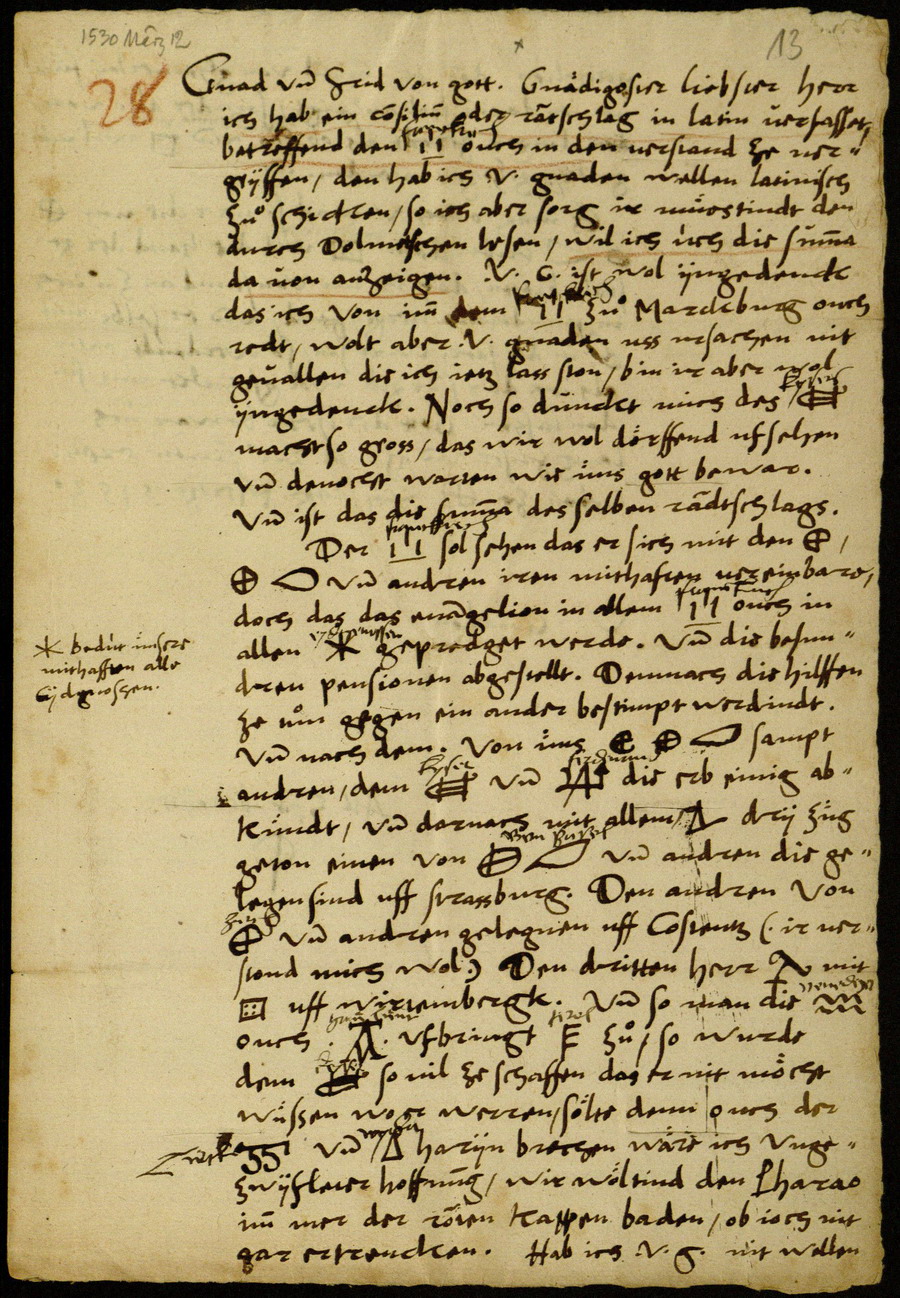 1530 März 12
13
28
Gnad vn̄ Frid von gott. Gnädigoster liebster herr
ich hab ein cōsiliū oder rātschlag in latin verfasset,
betreffend den II ouch in den verstand ze ver-
gryffen, den hab ich .V. gnaden wellen latinisch
zů schicken, so ich aber sorg ir müsstindt den
durch Dolmetschen lesen, wil ich üch die sum̄a
da von anzeigen. V. G. ist wol yngedenck
das ich von im̄ dem II zů Mardsburg ouch
redt, wolt aber .V. gnaden uss ursachen nit
geuallen die ich ietz lass ston, bin ir aber wol
yngedenck. Noch so dunckt mich des
macht so gross, das wir wol dörffend ufsehen
vn̄ dennocht warten wie üns gott bewar.
Vn̄ ist das die sum̄a desselben rādtschlags.
Der II sol sehen das er sich mit den ⊕,
⊕ vn̄ andren iren mithaften vereinbare,
doch das das euāgelion in allem II ouch in
allen * gepredget werde. Vn̄ die besun-
dren pensionen abgestellt. Demnach die hilffen
ze tůn gegen ein ander bestimpt werdindt.
Vn̄ nach dem. Von üns ⊕ ⊕ sampt
andren, dem keiser vn̄ die erb einig ab-
kündt, vn̄ darnach mit allem drÿ züg
geton einen von Bern Basel vn̄ andren die ge-
legen sind uff strassburg. Den andren Von
⊕ vn̄ andren gelegnen uff Costentz (. ir ver-
stond mich wol.) Den dritten herr mit
uff wirtembergk. Vn̄ so man die Venedyer
ouch ufbringt zů, so wurde
dem so vil ze schaffen das er nit möcht
wüssen wo er werren, sölte denn ouch der
Türk vn̄ harÿn brechen wäre ich Unge-
zwyfleter hoffnūg, wir wöltind den Pharao
im̄ mer der roten kappen baden, ob ioch nit
gar ertrencken. Hab ich .V. g. nit wellen
* bedüt ünsere
mithafften alle
Eydgnossen.